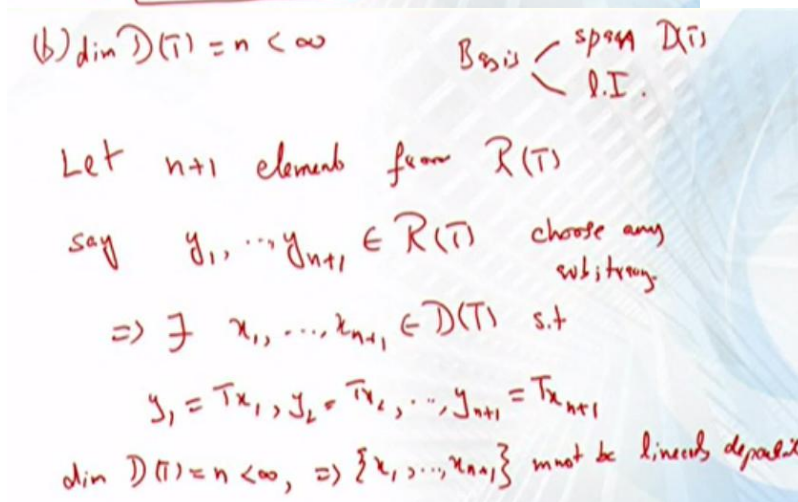 (b) dim D(T) = n < ∞
Basis < span D(T)
l.I.
Let n+1 elements from R(T)
say y₁, ..., yₙ₊₁ ∈ R(T) choose any
arbitrary
=> ∃ x₁, ..., xₙ₊₁ ∈ D(T) s.t
y₁ = Tx₁, y₂ = Tx₂, ..., yₙ₊₁ = Txₙ₊₁
dim D(T) = n < ∞, => {x₁, ..., xₙ₊₁} must be linearly dependent